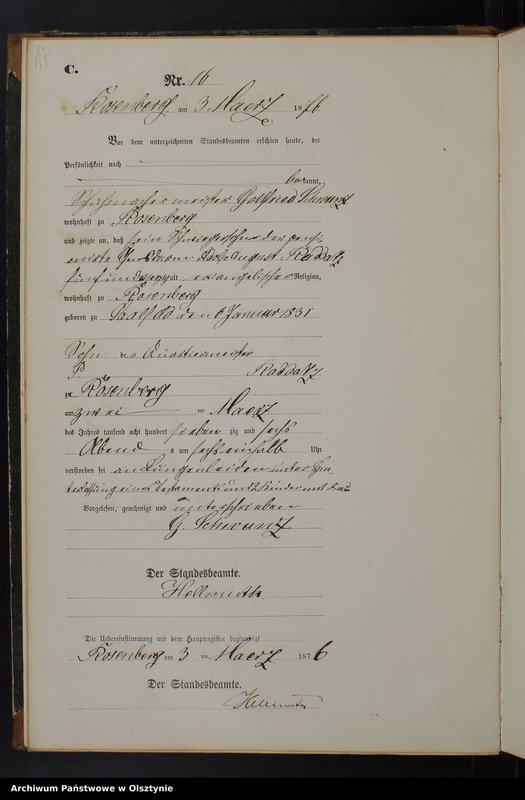 17
C.
Nr. 16
Rosenberg am 3 Maerz 1876
Vor dem unterzeichneten Standesbeamten erschien heute, der
Persönlichkeit nach
bekannt,
Schuhmachermeister Gottfried Schwanz
wohnhaft zu Rosenberg
und zeigte an, daß sein Schwiegersohn der pensi-
onirte Gensdarm Adolf August Raddatz
fünfundvierzig alt, evangelischer Religion,
wohnhaft zu Rosenberg
geboren zu Saalfeld den 6 Januar 1831
Sohn des Quartiermeister
Raddatz
zu Rosenberg
am zwei ten Maerz
des Jahres tausend acht hundert sieben zig und sechs
Abend s um sechs einhalb Uhr
verstorben sei an Lungenleiden unter Hin-
terlassung eines Testaments und 2 Kinder mit Frau
Vorgelesen, genehmigt und unterschrieben
G. Schwanz
Der Standesbeamte.
Hellmuth
Die Uebereinstimmung mit dem Hauptregister beglaubigt
Rosenberg am 3 ten Maerz 1876
Der Standesbeamte.
Hellmuth
Archiwum Państwowe w Olsztynie